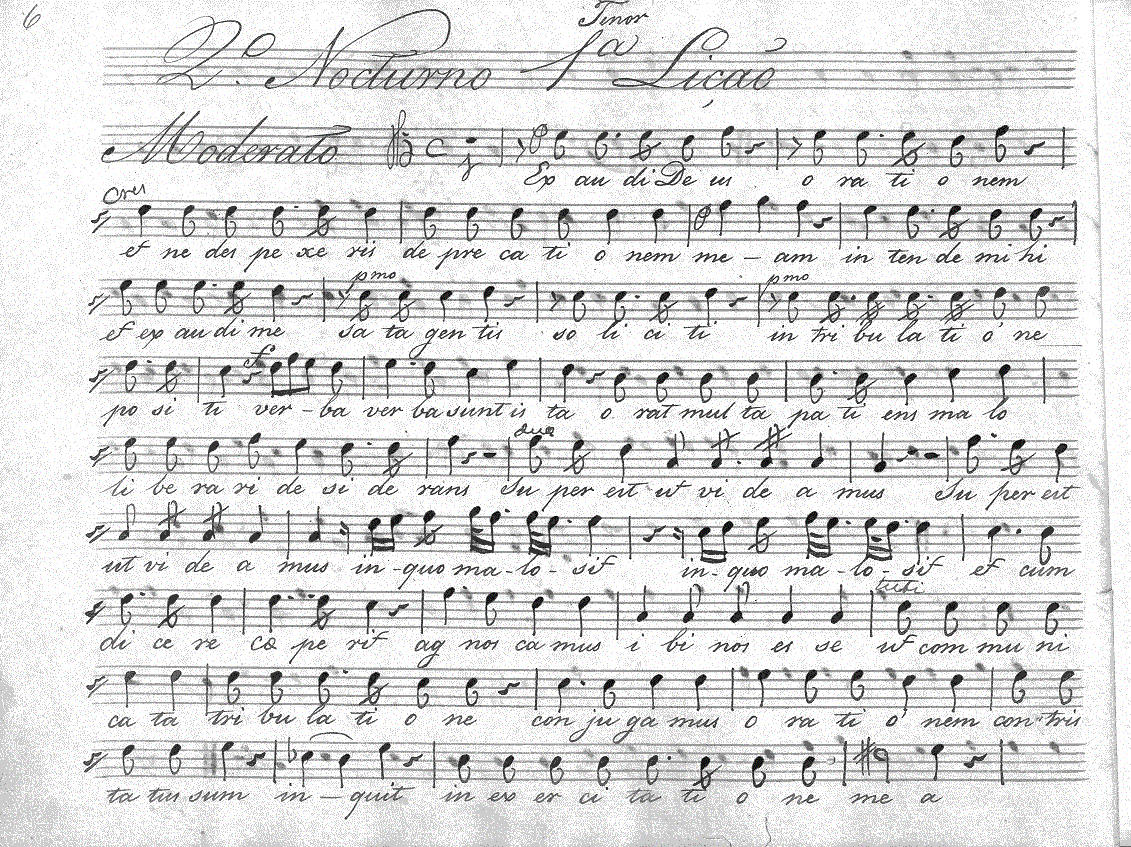 6
Tenor
2º Nocturno 1ª Liçaõ
Moderato
Ex au di De us o ra ti o nem
Cres
et ne des pe xe ris de pre ca ti o nem me - am in ten de mi hi
pmo pmo
et ex au di me sa ta gen tis so li ci ti in tri bu la ti o ne
po si ti ver - ba ver ba sunt is ta o rat mul ta pa ti ens ma lo
duo
li be ra ri de si de rans Su per est ut vi de a mus Su per est
ut vi de a mus in - quo ma - lo - sit in - quo ma - lo - sit et cum
tutti
di ce re cœ pe rit ag nos ca mus i bi nos es se ut com mu ni
ca ta tri bu la ti o ne con ju ga mus o ra ti o nem con tris
ta tus sum in - quit in ex er ci ta ti o ne me a